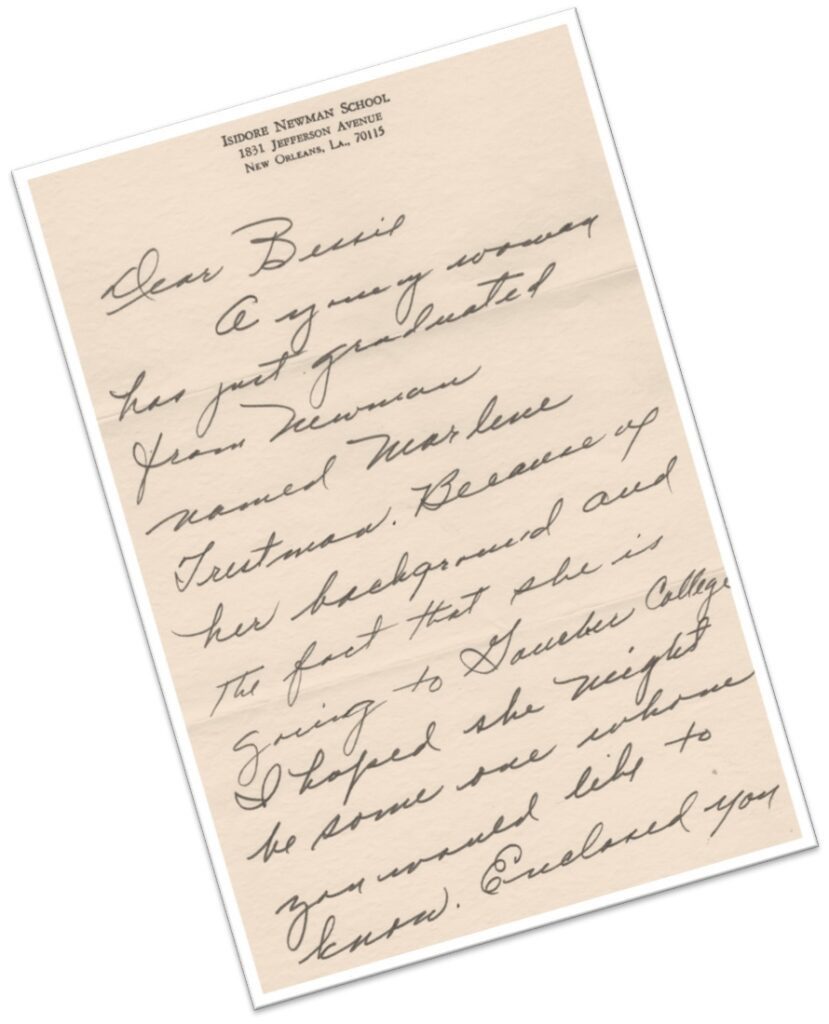 ISIDORE NEWMAN SCHOOL
1831 JEFFERSON AVENUE
NEW ORLEANS, LA., 70115
Dear Bessie
A young woman
has just graduated
from Newman
named Marlene
Trestman. Because of
her background and
the fact that she is
going to Goucher College
I hoped she might
be some one whom
you would like to
know. Enclosed you